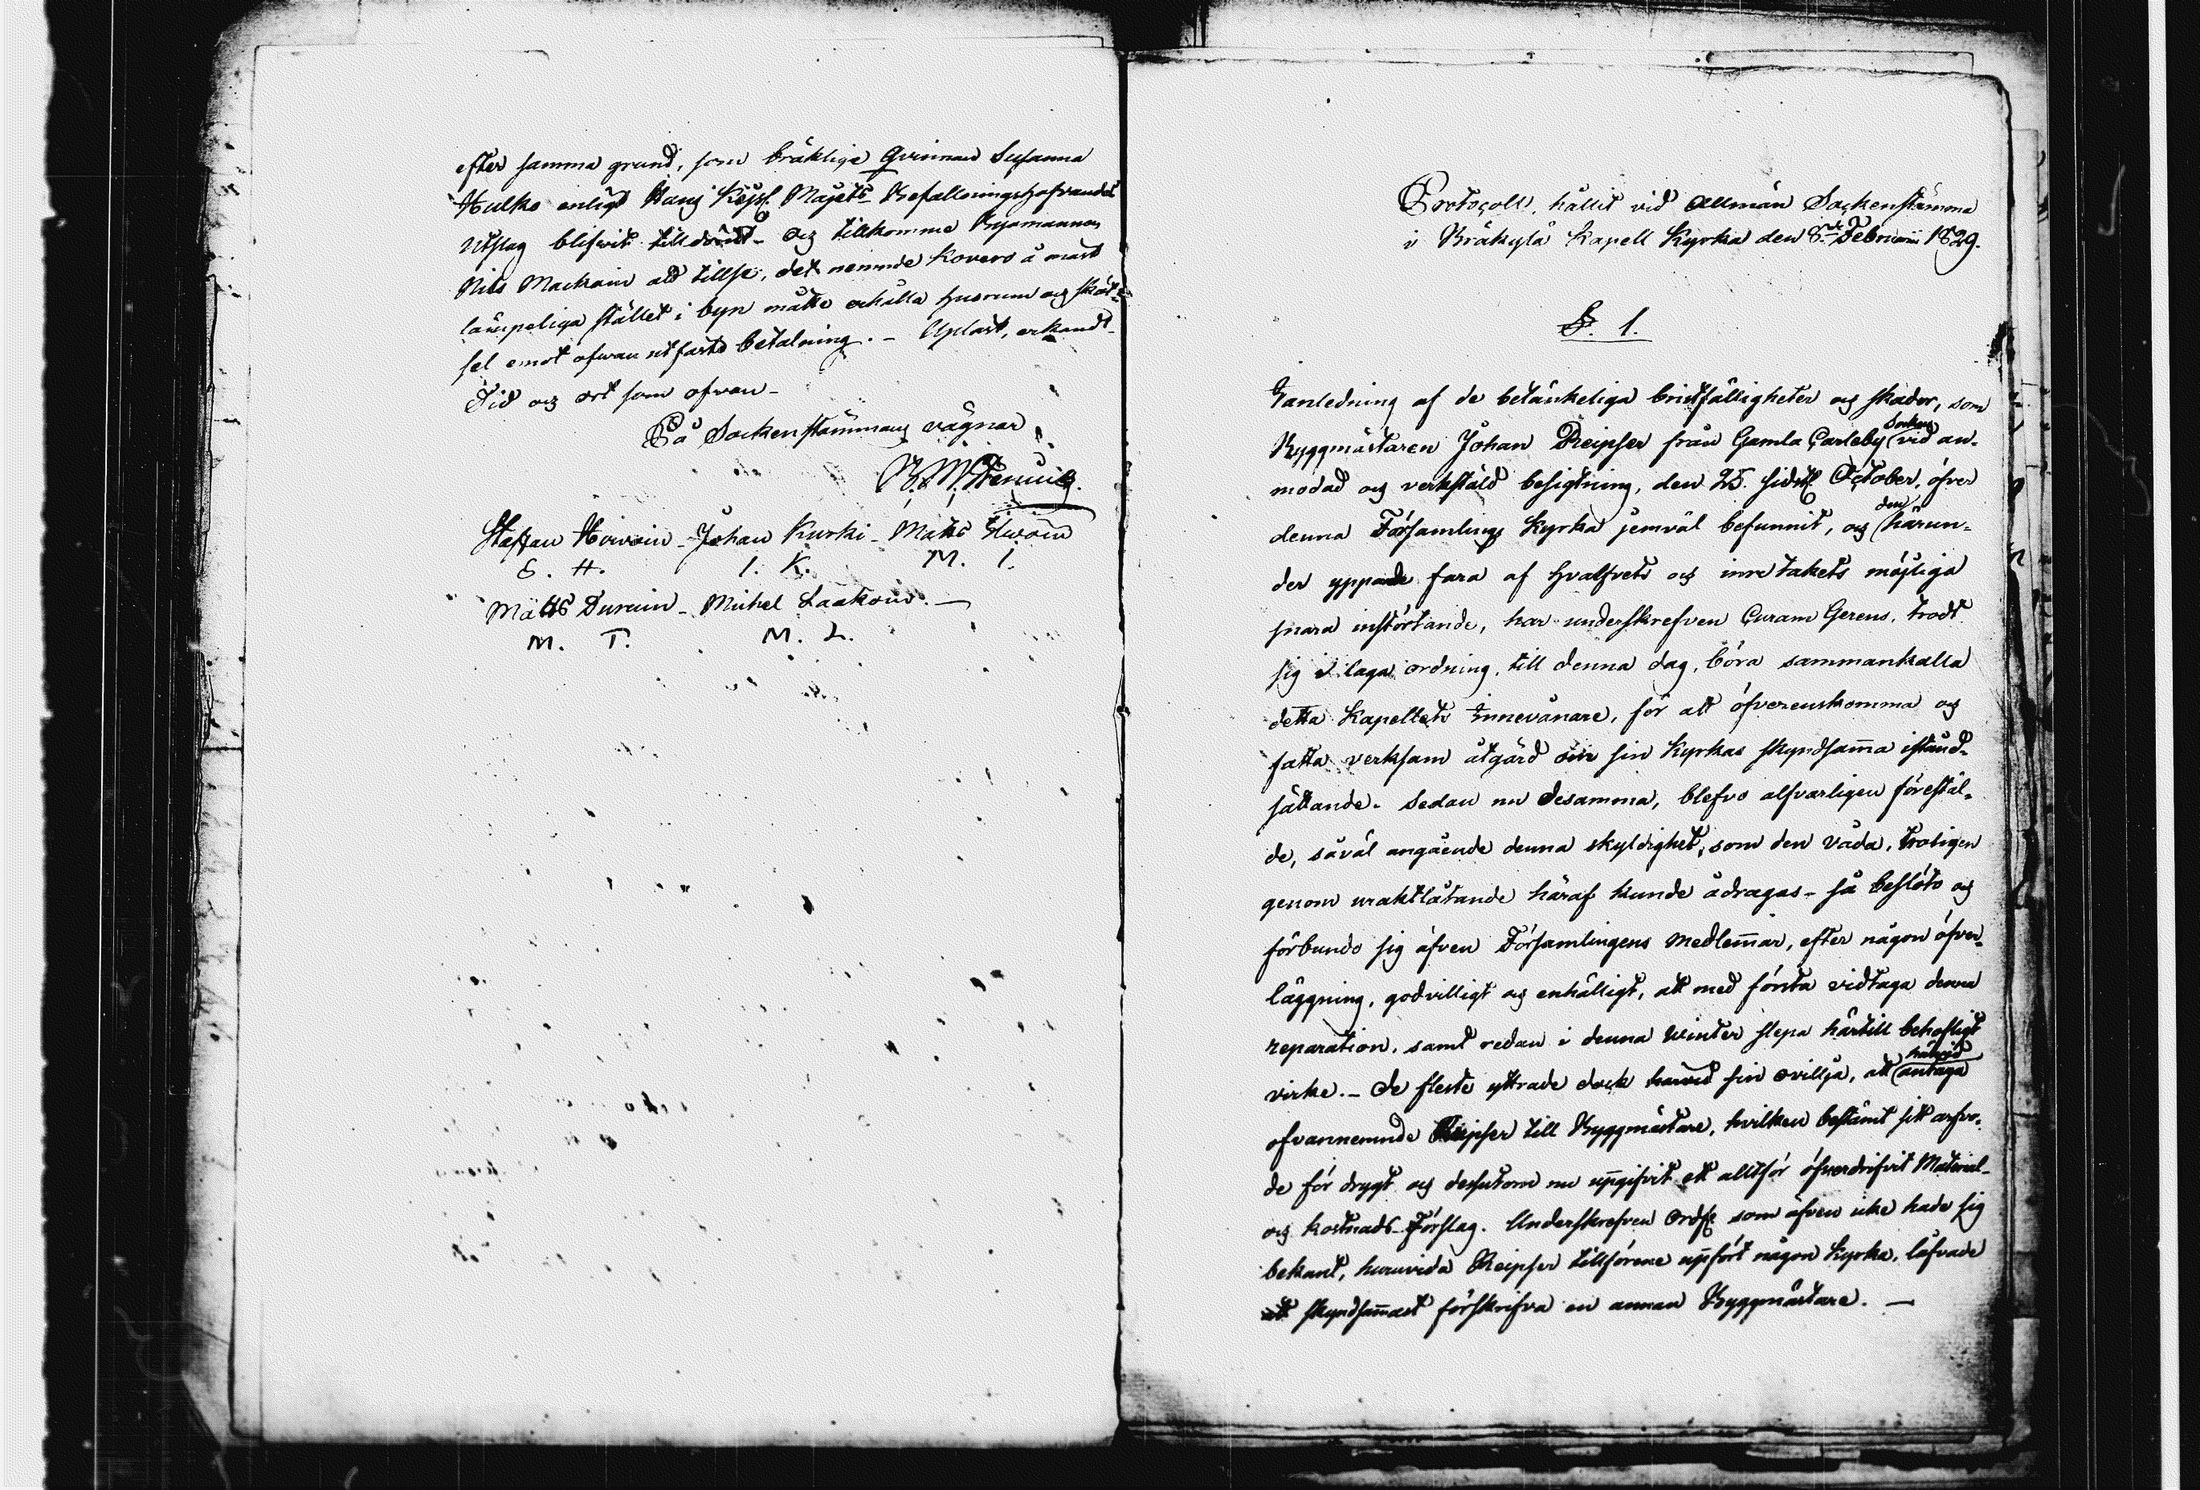 efter samma grund, som bräkliga Qvinnan Susanna
Hulko enligt Hans Kejsl. Majts Befallningshafvandes
Utslag blifvit tilldömt. Och tillkomme Byamannen
Nils Mackoin att tillse, det nemnde Kovero å mast
lämpeliga stället i byn måtte erhålla husrum och sköt-
sel emot ofwan utfäste betalning. – Upläst, erkändt
Tid och ort som ofwan –
På Sockenstämmans vägnar
Staffan Hirvoin – Johan Kurki – Matts
S. H. I. K. M. I.
Matts Turuin – Michel Laakoin. –
M. T. M. L.
Protocoll, hållit vid Allmän Sockenstämma
i Bräkylä Kapell Kyrka den 8de Februarii 1829.
§. 1.
I anledning af de betänkeliga bristfälligheter och skador, som
Byggmästaren Johan Reipser från Gamla Carleby Socken vid an-
modad och verkstäld besigtning, den 25. sidstl. October, öfver
denna Församlings Kyrka jemväl befunnit, och den härun-
der yppade fara af Hvalfvets och inre takets möjliga
snara instörtande, har underskrefven Curam Gerens, trodt
sig i laga ordning, till denna dag, böra sammankalla
detta Kapellets Innevånare, för att öfverenskomma och
fatta verksam åtgärd om sin Kyrkas skyndsamma istånd-
sättande. Sedan nu desamma, blefvo alfvarligen förestäl-
de, såväl angående denna skyldighet, som den våda, troligen
genom uraktlåtande häraf kunde ådragas – så beslöto och
förbundo sig äfven Församlingens Medlemmar, efter någon öfver-
läggning, godvilligt och enhälligt, att med första vidtaga denna
reparation, samt redan i denna Winter släpa härtill behöfligt
virke. – De fleste yttrade dock härvid sin ovillja, att härvid antaga
ofvannemnde Reipser till Byggmästare, hvilken bestämt sitt arfvo-
de för drygt och dessutom nu uppgifvit ett alltför öfverdrifvit Material-
och Kostnads-Förslag. Underskrefven Ordf. som äfven icke hade sig
bekant, huruvida Reipser tillförene uppfört någon Kyrka, låfvade
att skyndsammast förskrifva en annan Byggmästare. –